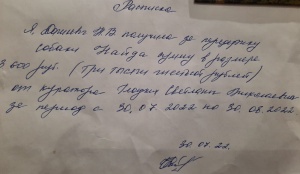 Расписка
Я, В получила за передержку
собаки Найда сумму в размере
3 000 руб. (три тысячи рублей)
от куратора Светланы Николаевны
за период с 30.07.2022 по 30.08.2022
30.07.22.